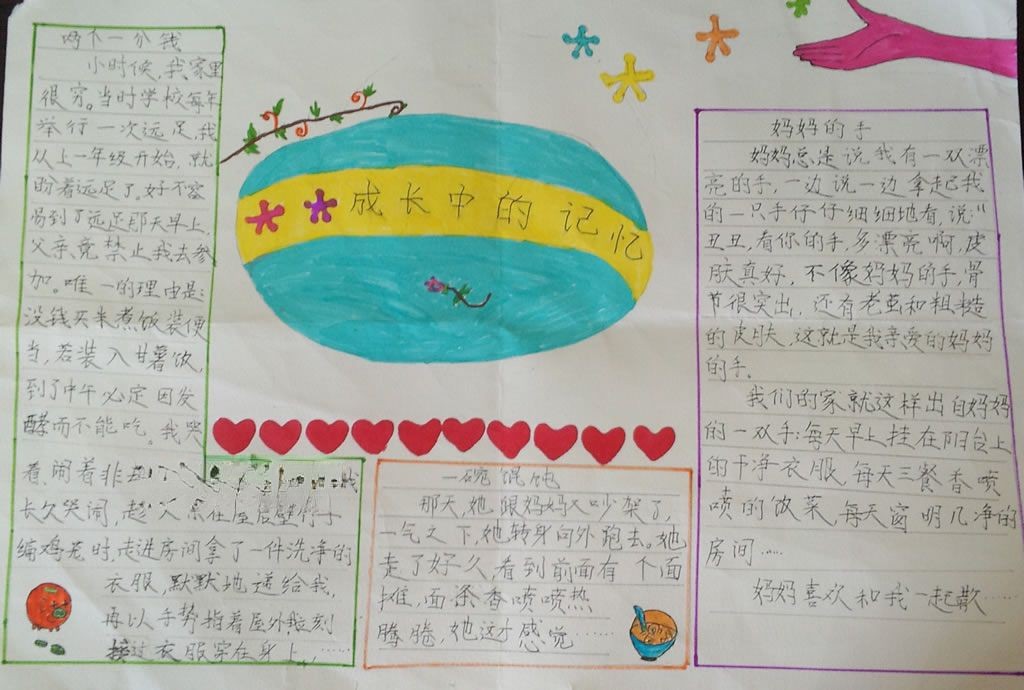 两个一分钱
小时候,我家里
很穷。当时学校每年
举行一次远足,我
从上一年级开始,就
盼着远足了。好不容
易到了远足那天早上,
父亲竟禁止我去参
加。唯一的理由是:
没钱买米煮饭装便
当,若装入甘薯饭,
到了中午必定因发
酵而不能吃。我哭
着,闹着非 我
长久哭闹,趁父亲在屋后劈竹子
编鸡笼时,走进房间拿了一件洗净的
衣服,默默地递给我,
再以手势指着屋外,我立刻
接过衣服穿在身上,……
成长中的记忆
一碗馄饨
那天,她跟妈妈又吵架了,
一气之下,她转身向外跑去。她
走了好久,看到前面有个面
摊,面条香喷喷热
腾腾,她这才感觉……
妈妈的手
妈妈总是说我有一双漂
亮的手,一边说一边拿起我
的一只手仔仔细细地看,说:“
丑丑,看你的手,多漂亮啊,皮
肤真好,不像妈妈的手,骨
节很突出,还有老茧和粗糙
的皮肤,这就是我亲爱的妈妈
的手。
我们的家就这样出自妈妈
的一双手:每天早上挂在阳台上
的干净衣服,每天三餐香喷
喷的饭菜,每天窗明几净的
房间……
妈妈喜欢和我一起散……